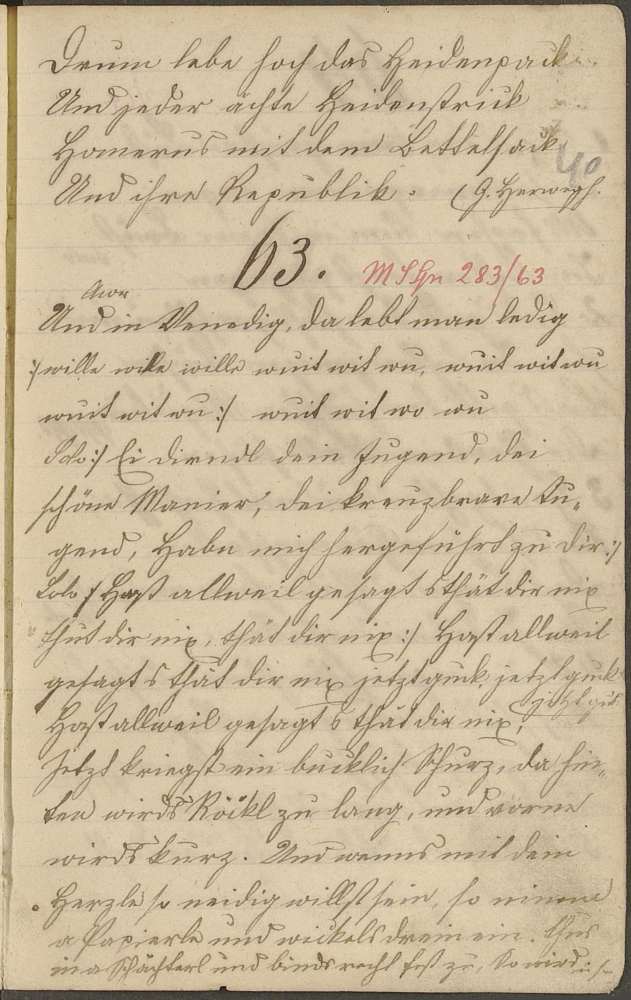 Drum lebe hoch das Heidenpack
Und jeder ächte Heidenstrick
Homerus mit dem Bettelsack
40
Und ihre Republik. (G. Herwegh.
63. M SHn 283/63
Und in Venedig, da lebt man ledig
:/ wille wille wille wuit wit wu, wuit wit wu
wuit wit wu :/ wuit wit wo wu
Solo :/ Ei dirndl dein Jugend, dei
schöne Manier, dei kreuzbrave Tu-
gend, Habn mich hergeführt zu dir :/
Solo / Hast allweil gesagt s thät dir nix
thut dir nix, thät dir nix :/ Hast allweil
gesagt s thät dir nix jetzt guck, jetzt guck
jetzt guck
Hast allweil gesagt s thät dir nix,
Jetzt kriegst ein bucklich Schurz, da hin-
ten wirds Röckl zu lang, und vorne
wirds kurz. Und wenns mit dein
Herzle so neidig willst sein, so nimm
a Papierle und wickels drein ein. thus
in a Schächterl und binds recht fest zu, So wird